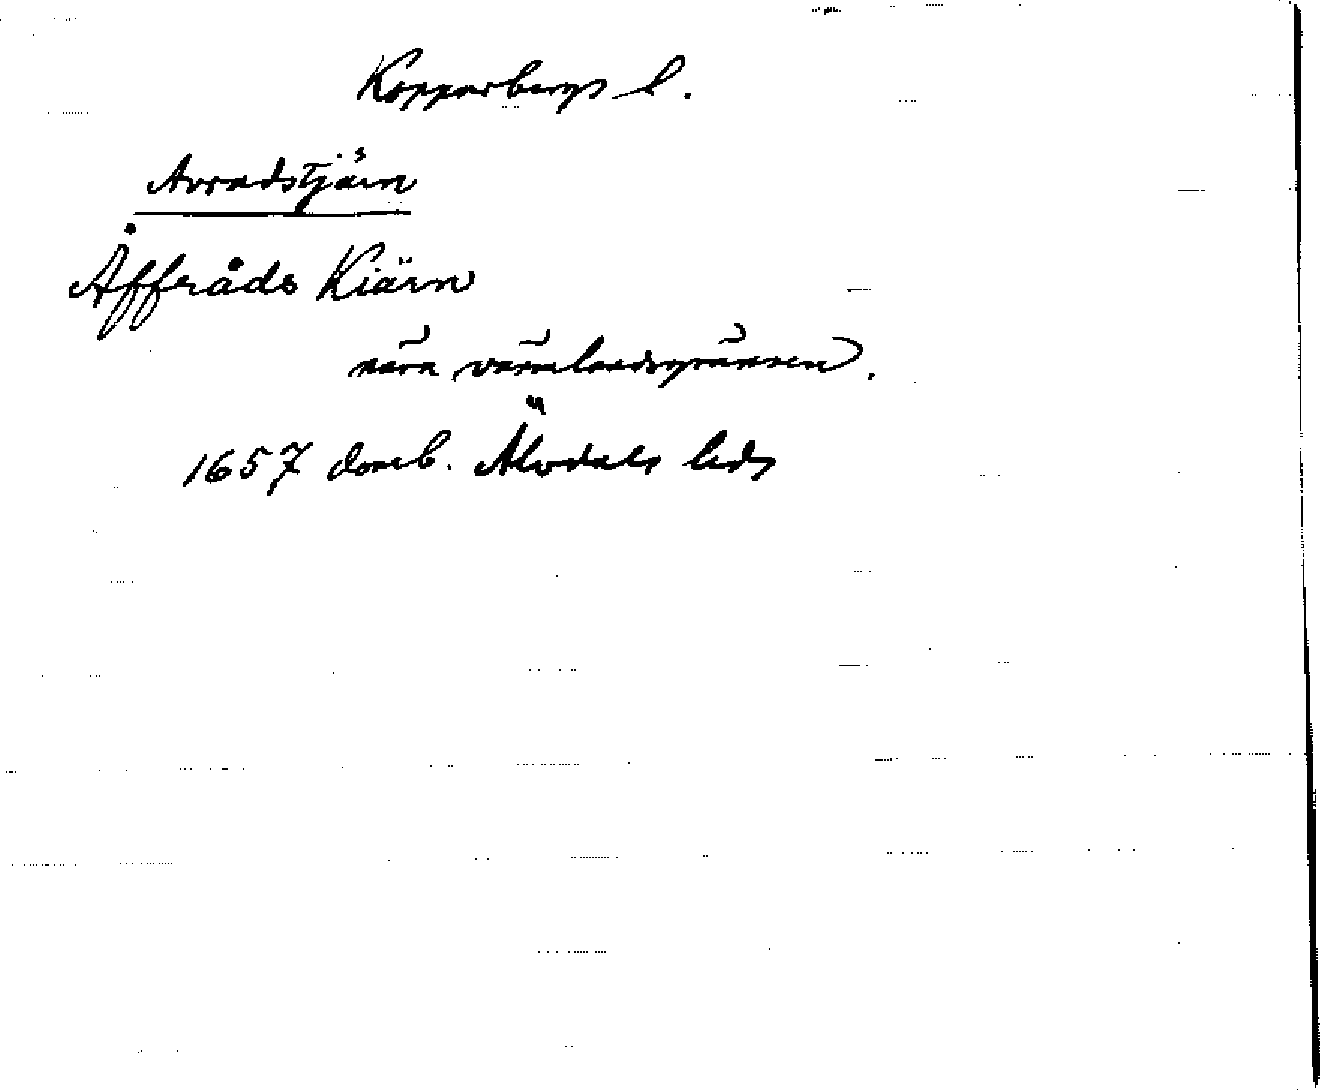 Kopparbergs l.
Avradstjärn
Åffråds Kiärn
nära värmlandsgränsen.
1657 domb. Älvdals lids